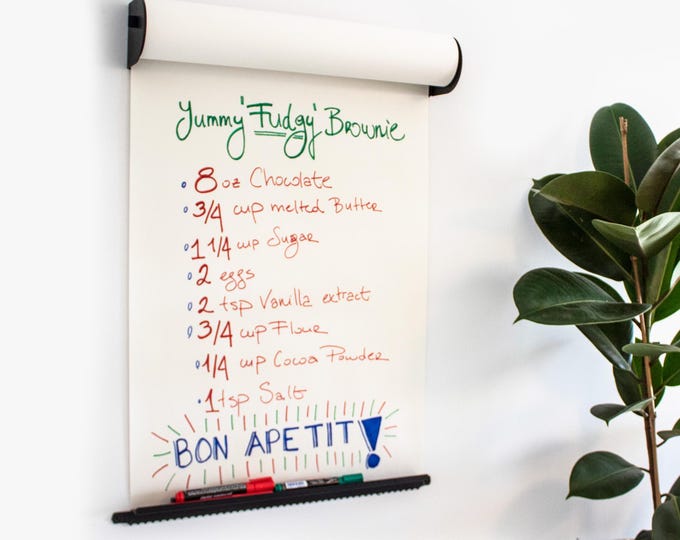 Yummy 'Fudgy' Brownie
8 oz Chocolate
3/4 cup melted Butter
1 1/4 cup Sugar
2 eggs
2 tsp Vanilla extract
3/4 cup Flour
1/4 cup Cocoa Powder
1 tsp Salt
BON APETIT!